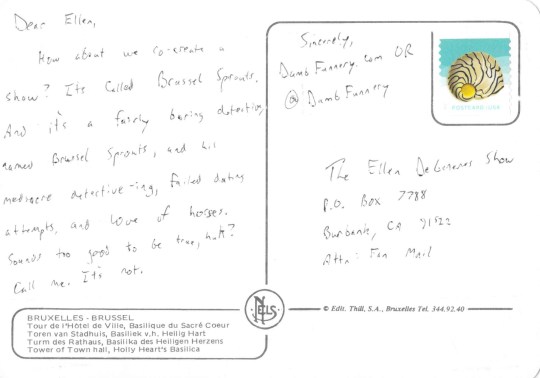 Dear Ellen,
How about we co-create a
show? Its Called Brussel Sprouts.
And it's a fairly boring detective
named Brussel Sprouts, and his
mediocre detective-ing, failed dating
attempts, and love of horses.
Sounds too good to be true, huh?
Call me. It's not.
Sincerely,
DumbFunnery.com OR
@DumbFunnery
POSTCARD USA
The Ellen DeGeneres Show
P.O. Box 7788
Burbank, CA 91522
Attn: Fan Mail
NELS
© Edit. Thill, S.A., Bruxelles Tel. 344.92.40
BRUXELLES - BRUSSEL
Tour de l'Hôtel de Ville, Basilique du Sacré Coeur
Toren van Stadhuis, Basiliek v.h. Heilig Hart
Turm des Rathaus, Basilika des Heiligen Herzens
Tower of Town hall, Holly Heart's Basilica